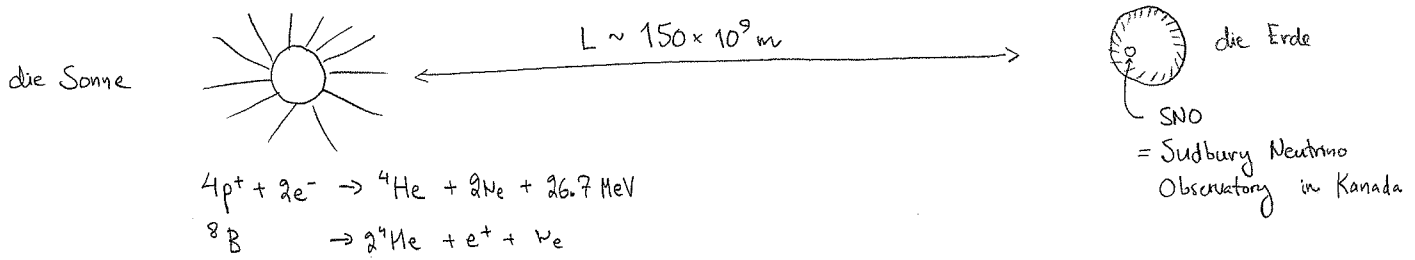 die Sonne
L ~ 150 × 10⁹ m
die Erde
SNO
= Sudbury Neutrino
Observatory in Kanada
4p⁺ + 2e⁻ → ⁴He + 2νe + 26.7 MeV
⁸B → 2⁴He + e⁺ + νe